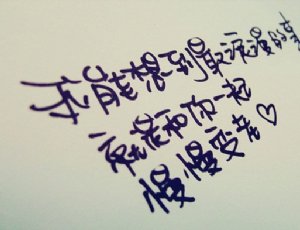 我能想到最浪漫的事
就是和你一起
慢慢变老♡